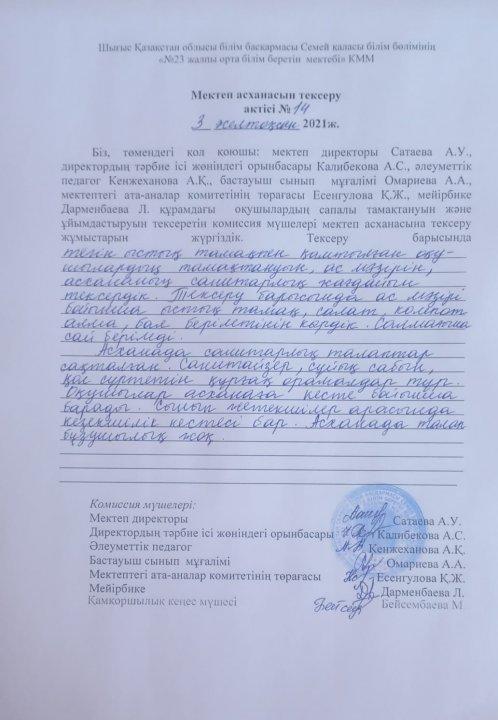 Шығыс Қазақстан облысы білім басқармасы Семей қаласы білім бөлімінің
«№23 жалпы орта білім беретін мектебі» КММ
Мектеп асханасын тексеру
актісі № 14
3 желтоқсан 2021ж.
Біз, төмендегі қол қоюшы: мектеп директоры Сатаева А.У.,
директордың тәрбие ісі жөніндегі орынбасары Калибекова А.С., әлеуметтік
педагог Кенжеханова А.Қ., бастауыш сынып мұғалімі Омариева А.А.,
мектептегі ата-аналар комитетінің төрағасы Есенгулова Қ.Ж., мейірбике
Дарменбаева Л. құрамдағы оқушылардың сапалы тамақтануын және
ұйымдастыруын тексеретін комиссия мүшелері мектеп асханасына тексеру
жұмыстарын жүргіздік. Тексеру барысында
тегін ыстық тамақпен қамтылған оқу-
шылардың тамақтануын, ас мәзірін,
асхананың санитарлық жағдайын
тексердік. Тексеру барысында ас мәзірі
бойынша ыстық тамақ, салат, компот
алма, бал берілетінін көрдік. Салмағына
сай берілді.
Асханада санитарлық талаптар
сақталған. Санитайзер, сұйық сабын,
қол сүртетін құрғақ орамалдар тұр.
Оқушылар асханаға кесте бойынша
барады. Сынып жетекшілер арасында
кезекшілік кестесі бар. Асханада талап
бұзушылық жоқ.
Комиссия мүшелері:
Мектеп директоры Сатаева А.У.
Директордың тәрбие ісі жөніндегі орынбасары Калибекова А.С.
Әлеуметтік педагог Кенжеханова А.Қ.
Бастауыш сынып мұғалімі Омариева А.А.
Мектептегі ата-аналар комитетінің төрағасы Есенгулова Қ.Ж.
Мейірбике Дарменбаева Л.
Қамқоршылық кеңес мүшесі Бейсембаева М